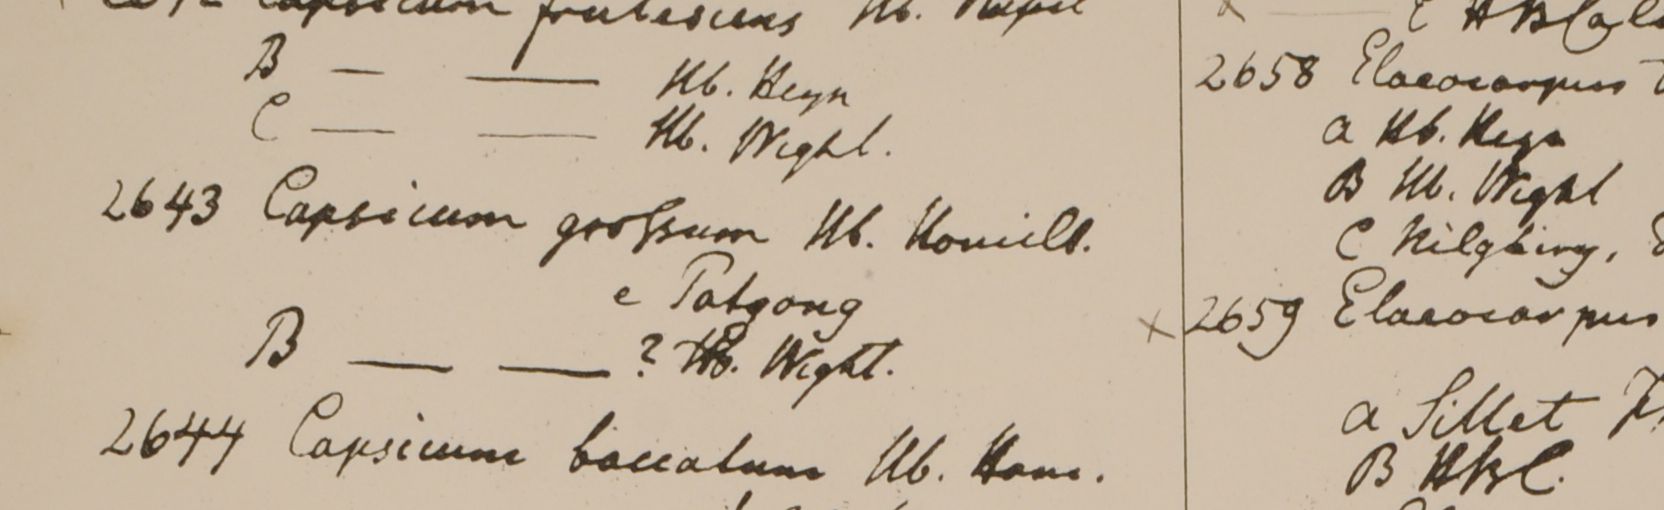 Capsicum frutescens Hb.
B — — Hb. Heyn
C — — Hb. Wight.
2643 Capsicum grossum Hb. Hamilt.
e Patgong
B — — ? Hb. Wight.
2644 Capsicum baccatum Hb. Ham.
C HBC
2658 Elaeocarpus
a Hb. Heyn
B Hb. Wight
C Nilghiry,
× 2659 Elaeocarpus
a Sillet
B HBC.